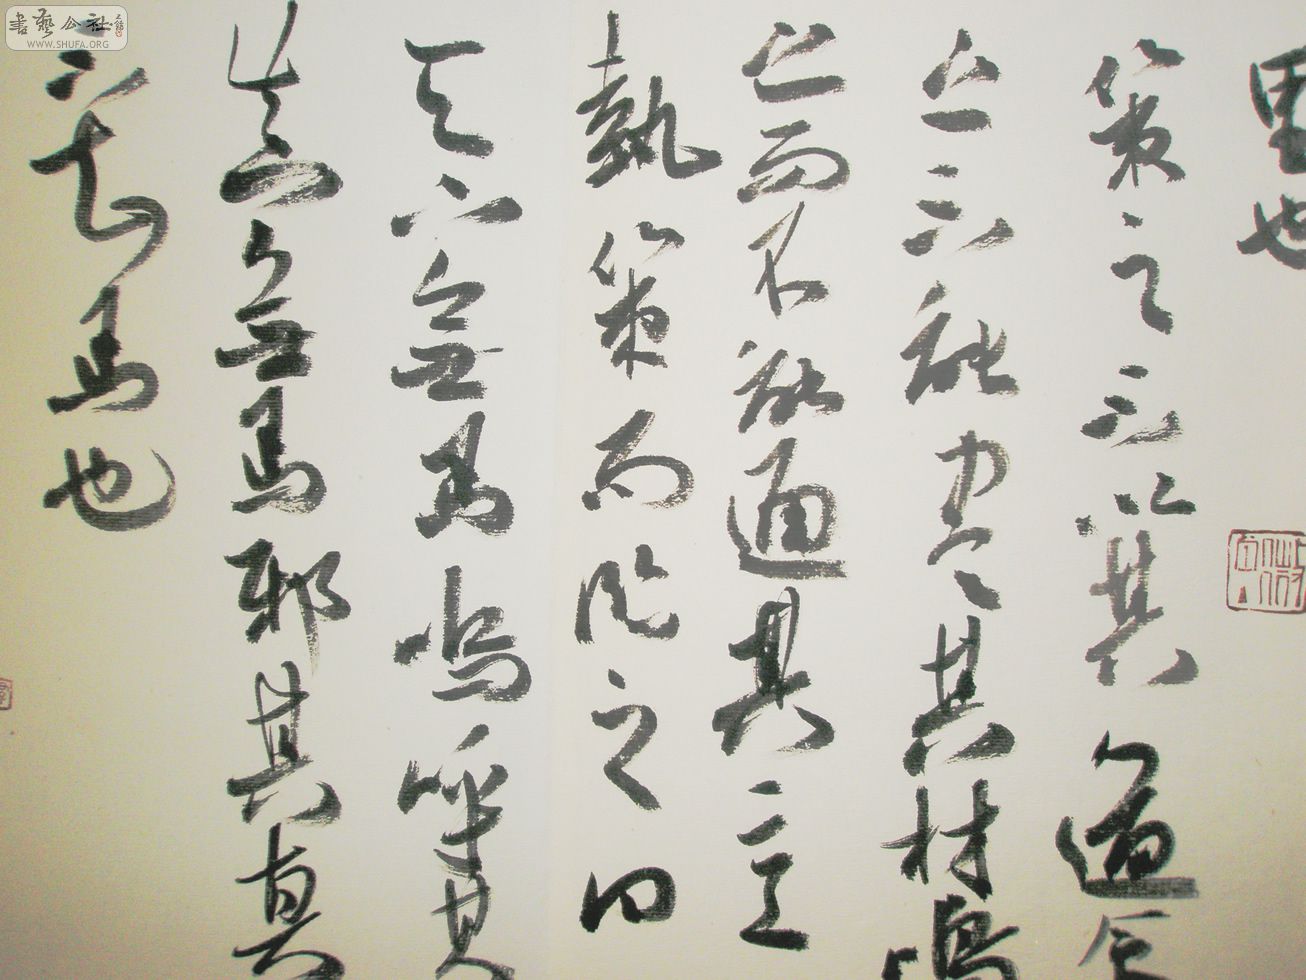 里也
策之不以其道食
之不能尽其材鳴
之而不能通其意
執策而临之曰
天下無馬嗚呼其
真無馬邪其真
不知馬也
書藝公社
WWW.SHUFA.ORG